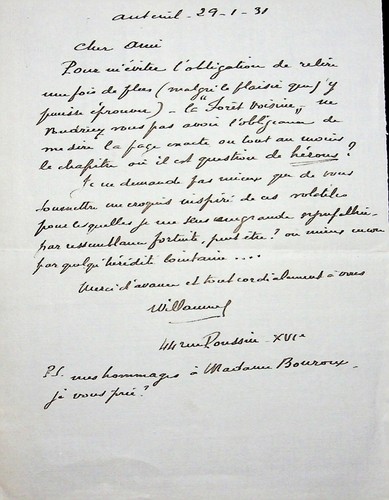 Auteuil - 29-1-31
Cher Ami
Pour m'éviter l'obligation de relire
une fois de plus (malgré le plaisir que j'y
puisse éprouver) - la "Forêt Voisine", ne
voudriez vous pas avoir l'obligeance de
me dire la page exacte ou tout au moins
le chapitre où il est question de hérons?
Je ne demande pas mieux que de vous
soumettre un croquis inspiré de ces volatiles
pour lesquelles je me sens une grande sympathie -
par ressemblance fortuite, peut être? ou mieux encore
par quelqu'hérédité lointaine ....
Merci d'avance et tout cordialement à vous
Willaume
44 rue Poussin - XVIe
P.S. mes hommages à Madame Bouroux -
je vous prie?